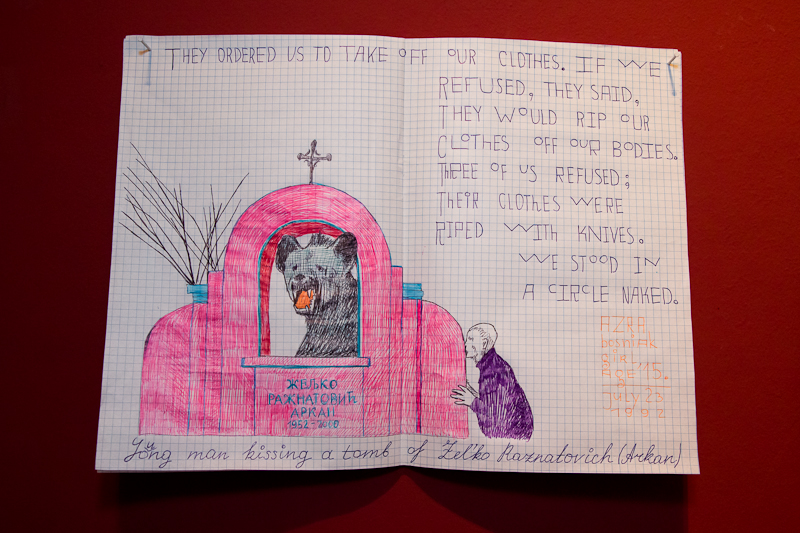 THEY ORDERED US TO TAKE OFF OUR CLOTHES. IF WE
REFUSED, THEY SAID,
THEY WOULD RIP OUR
CLOTHES OFF OUR BODIES.
THREE OF US REFUSED;
THEIR CLOTHES WERE
RIPED WITH KNIVES.
WE STOOD IN
A CIRCLE NAKED.
AZRA
bosniak
girl
age '15.
July 23
1992
ЖЕЉКО
РАЖНАТОВИЋ
АРКАН
1952-2000
Yöng man kissing a tomb of Zel'ko Raznatovich (Arkan)